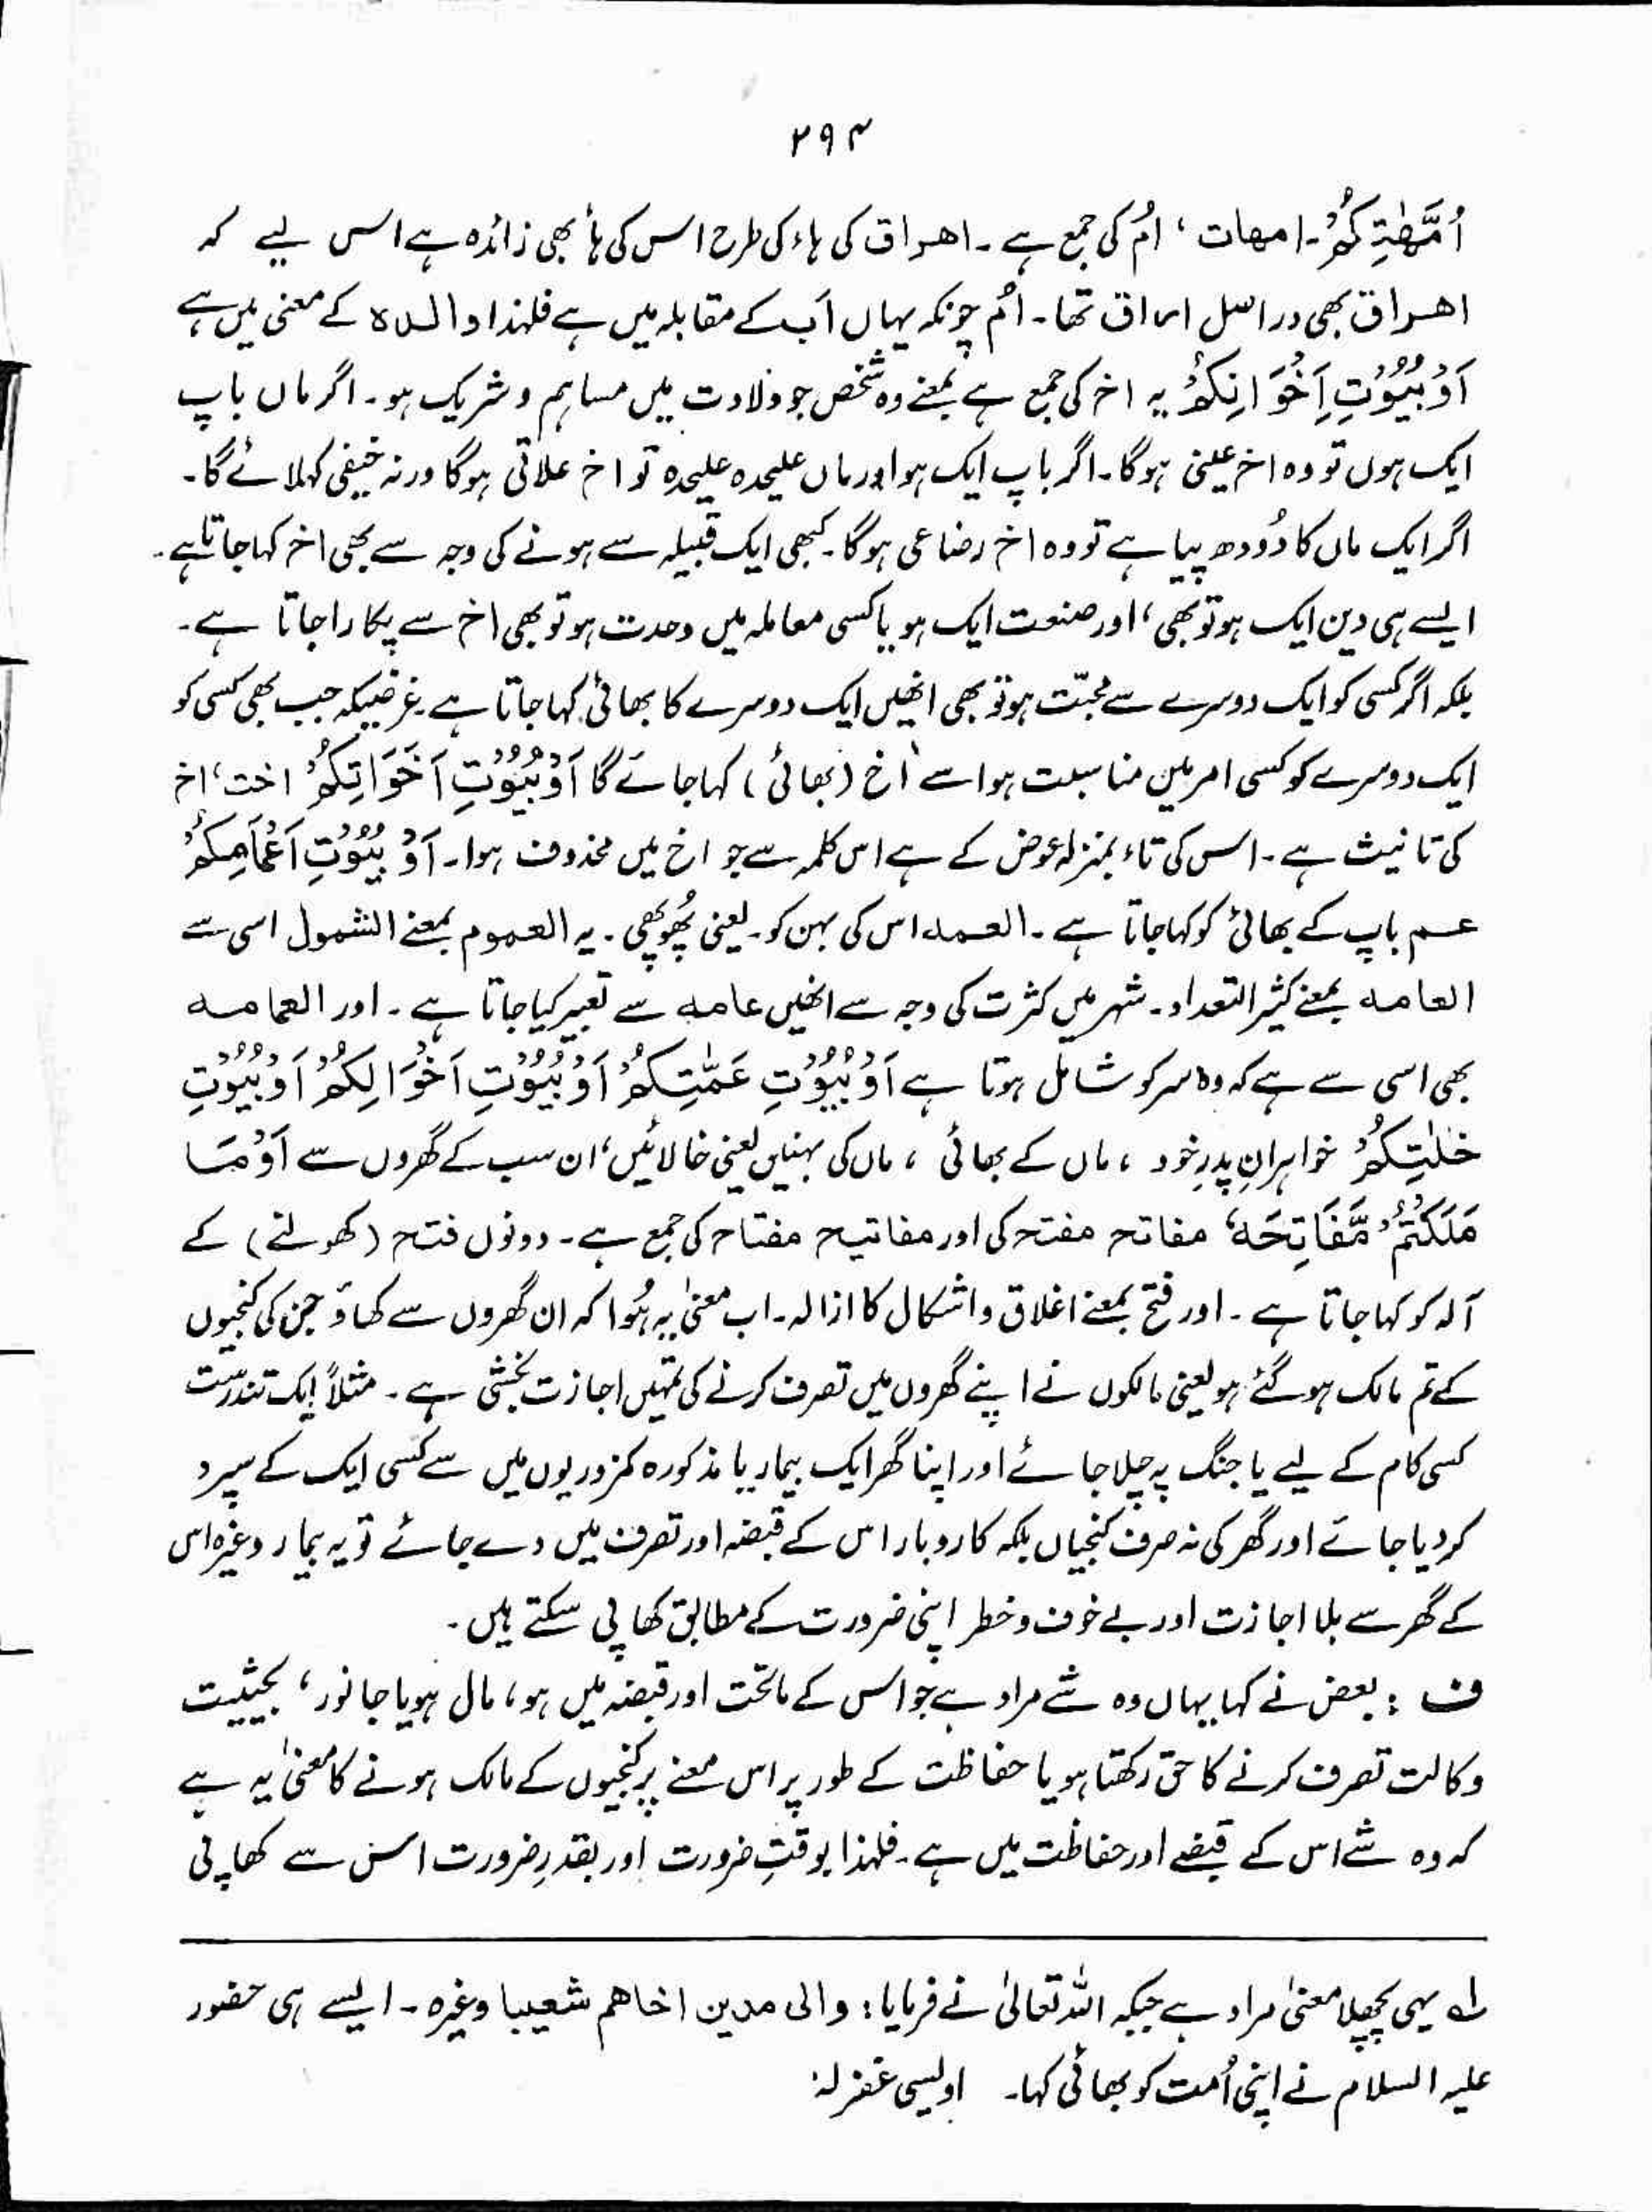 ۲۹۴
اُمَّهٰتِكُمْ۔ امهات، اُم کی جمع ہے۔ اهراق کی ہاء کی طرح اس کی ہأ بھی زائدہ ہے اس لیے کہ
اهراق بھی دراصل اراق تھا۔ اُم چونکہ یہاں اَب کے مقابلہ میں ہے فلہٰذا والدہ کے معنی میں ہے
اَوْ بُيُوْتِ اِخْوَانِكُمْ یہ اخ کی جمع ہے بمعنے وہ شخص جو ولادت میں مساہم و شریک ہو۔ اگر ماں باپ
ایک ہوں تو وہ اخ عینی ہوگا۔ اگر باپ ایک ہو اور ماں علیحدہ علیحدہ تو اخ علاتی ہوگا ورنہ خیفی کہلائے گا۔
اگر ایک ماں کا دُودھ پیا ہے تو وہ اخ رضاعی ہوگا۔ کبھی ایک قبیلہ سے ہونے کی وجہ سے بھی اخ کہا جاتا ہے۔
ایسے ہی دین ایک ہو تو بھی، اور صنعت ایک ہو یا کسی معاملہ میں وحدت ہو تو بھی اخ سے پکارا جاتا ہے۔
بلکہ اگر کسی کو ایک دوسرے سے محبّت ہو تو بھی انھیں ایک دوسرے کا بھائی کہا جاتا ہے۔ غرضیکہ جب بھی کسی کو
ایک دوسرے کو کسی امر میں مناسبت ہو اسے اخ (بھائی) کہا جائے گا اَوْ بُيُوْتِ اَخَوَاتِكُمْ اخت، اخ
کی تانیث ہے۔ اس کی تاء بمنزلہ عوض کے ہے اس کلمہ سے جو اخ میں محذوف ہوا۔ اَوْ بُيُوْتِ اَعْمَامِكُمْ
عم باپ کے بھائی کو کہا جاتا ہے۔ العمہ اس کی بہن کو۔ یعنی پُھوپھی۔ یہ العموم بمعنے الشمول اسی سے
العامہ بمعنے کثیر التعداد۔ شہر میں کثرت کی وجہ سے انھیں عامہ سے تعبیر کیا جاتا ہے۔ اور العمامہ
بھی اسی سے ہے کہ وہ سر کو شامل ہوتا ہے اَوْ بُيُوْتِ عَمّٰتِكُمْ اَوْ بُيُوْتِ اَخْوَالِكُمْ اَوْ بُيُوْتِ
خٰلٰتِكُمْ خواہرانِ پدرِ خود، ماں کے بھائی، ماں کی بہنیں یعنی خالائیں، ان سب کے گھروں سے اَوْ مَا
مَلَكْتُمْ مَّفَاتِحَهٗ مفاتح مفتح کی اور مفاتیح مفتاح کی جمع ہے۔ دونوں فتح (کھولنے) کے
آلہ کو کہا جاتا ہے۔ اور فتح بمعنے اغلاق و اشکال کا ازالہ۔ اب معنیٰ یہ ہُوا کہ ان گھروں سے کھاؤ جن کی کنجیوں
کے تم مالک ہو گئے ہو یعنی مالکوں نے اپنے گھروں میں تصرف کرنے کی تمہیں اجازت بخشی ہے۔ مثلاً ایک تندرست
کسی کام کے لیے یا جنگ پہ چلا جائے اور اپنا گھر ایک بیمار یا مذکورہ کمزوریوں میں سے کسی ایک کے سپرد
کر دیا جائے اور گھر کی نہ صرف کنجیاں بلکہ کاروبار اس کے قبضہ اور تصرف میں دے جائے تو یہ بیمار وغیرہ اس
کے گھر سے بلا اجازت اور بے خوف و خطر اپنی ضرورت کے مطابق کھا پی سکتے ہیں۔
ف : بعض نے کہا یہاں وہ شے مراد ہے جو اس کے ماتحت اور قبضہ میں ہو، مال ہو یا جانور، بحیثیت
وکالت تصرف کرنے کا حق رکھتا ہو یا حفاظت کے طور پر اس معنے پر کنجیوں کے مالک ہونے کا معنیٰ یہ ہے
کہ وہ شے اس کے قبضے اور حفاظت میں ہے۔ فلہٰذا بوقتِ ضرورت اور بقدرِ ضرورت اس سے کھا پی
لہ یہی پچھلا معنیٰ مراد ہے جبکہ اللہ تعالیٰ نے فرمایا : والی مدین اخاهم شعیبا وغیرہ۔ ایسے ہی حضور
علیہ السلام نے اپنی اُمت کو بھائی کہا۔ اویسی غفرلہٗ